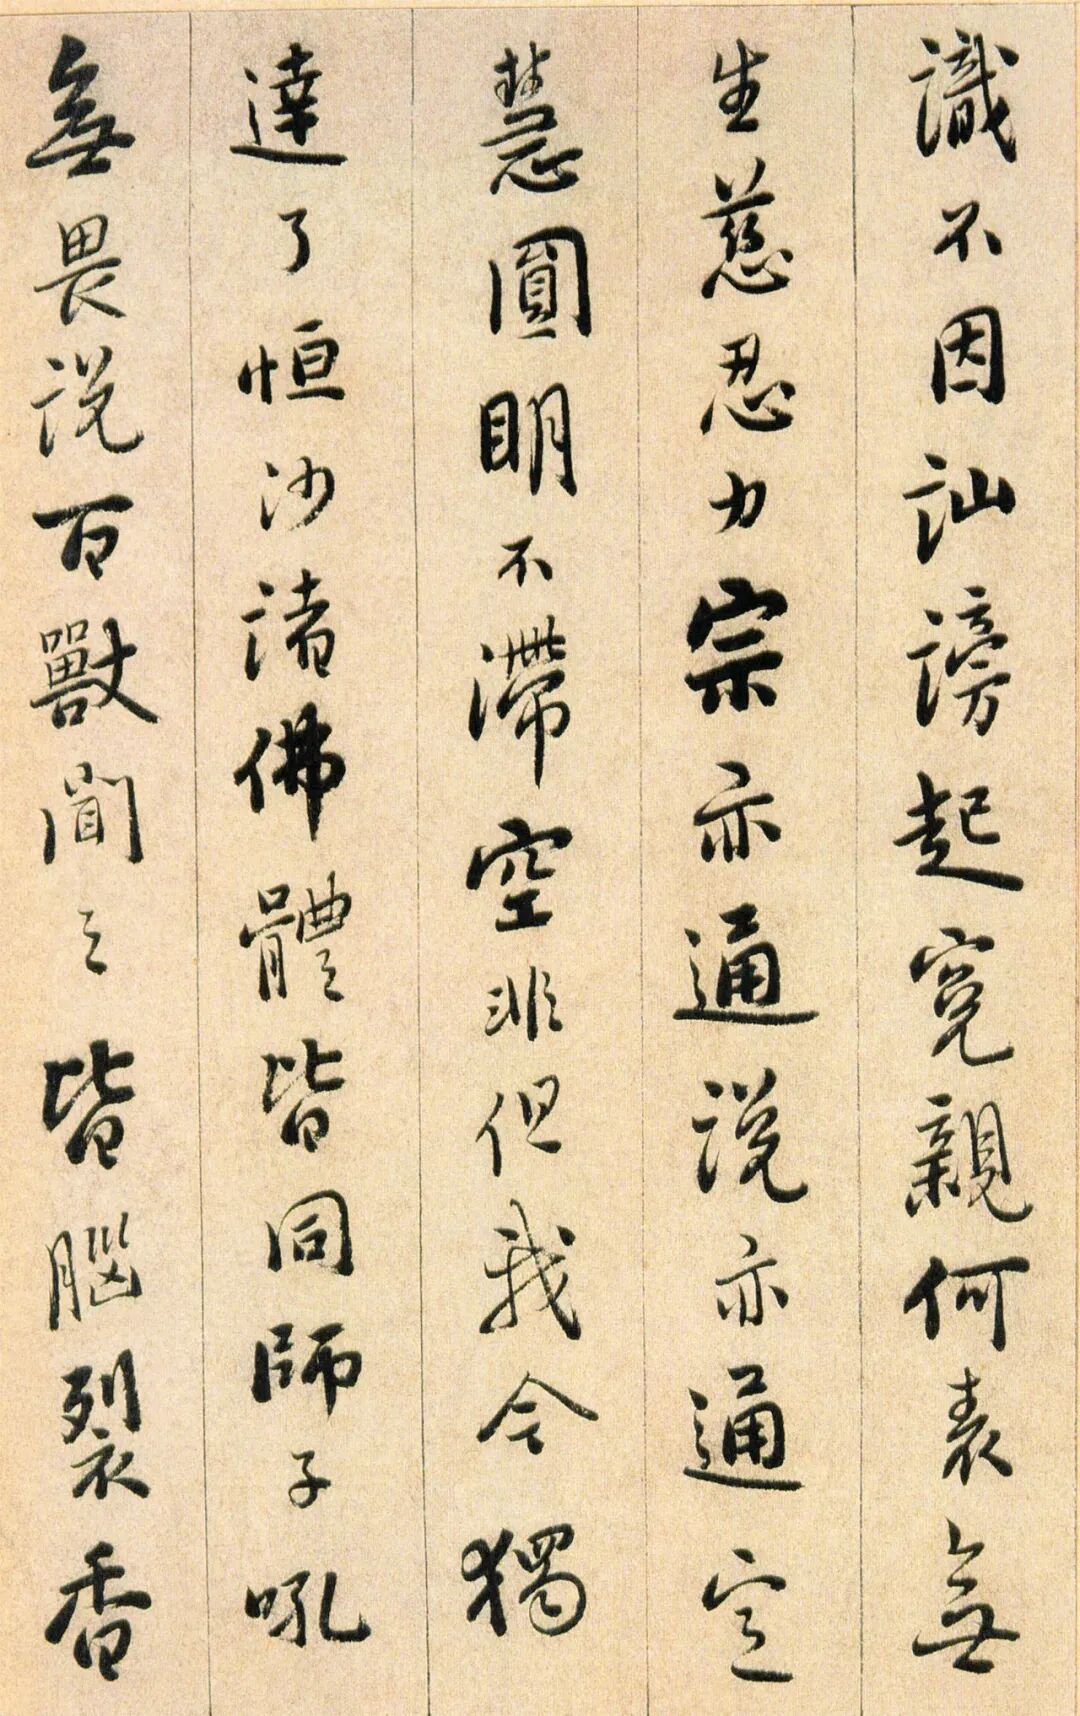 識不因訕謗起寃親何表無
生慈忍力宗亦通說亦通定
慧圓明不滯空非但我今獨
達了恒沙諸佛體皆同師子吼
無畏説百獸聞之皆腦裂香